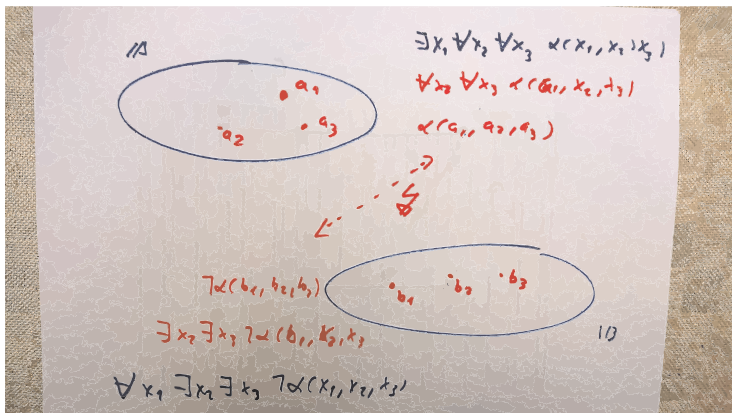 𝔸
∃x₁ ∀x₂ ∀x₃ α(x₁, x₂, x₃)
a₁
∀x₂ ∀x₃ α(a₁, x₂, x₃)
a₂
a₃
α(a₁, a₂, a₃)
¬α(b₁, b₂, b₃)
b₁
b₂
b₃
∃x₂ ∃x₃ ¬α(b₁, x₂, x₃
𝔹
∀x₁ ∃x₂ ∃x₃ ¬α(x₁, x₂, x₃)